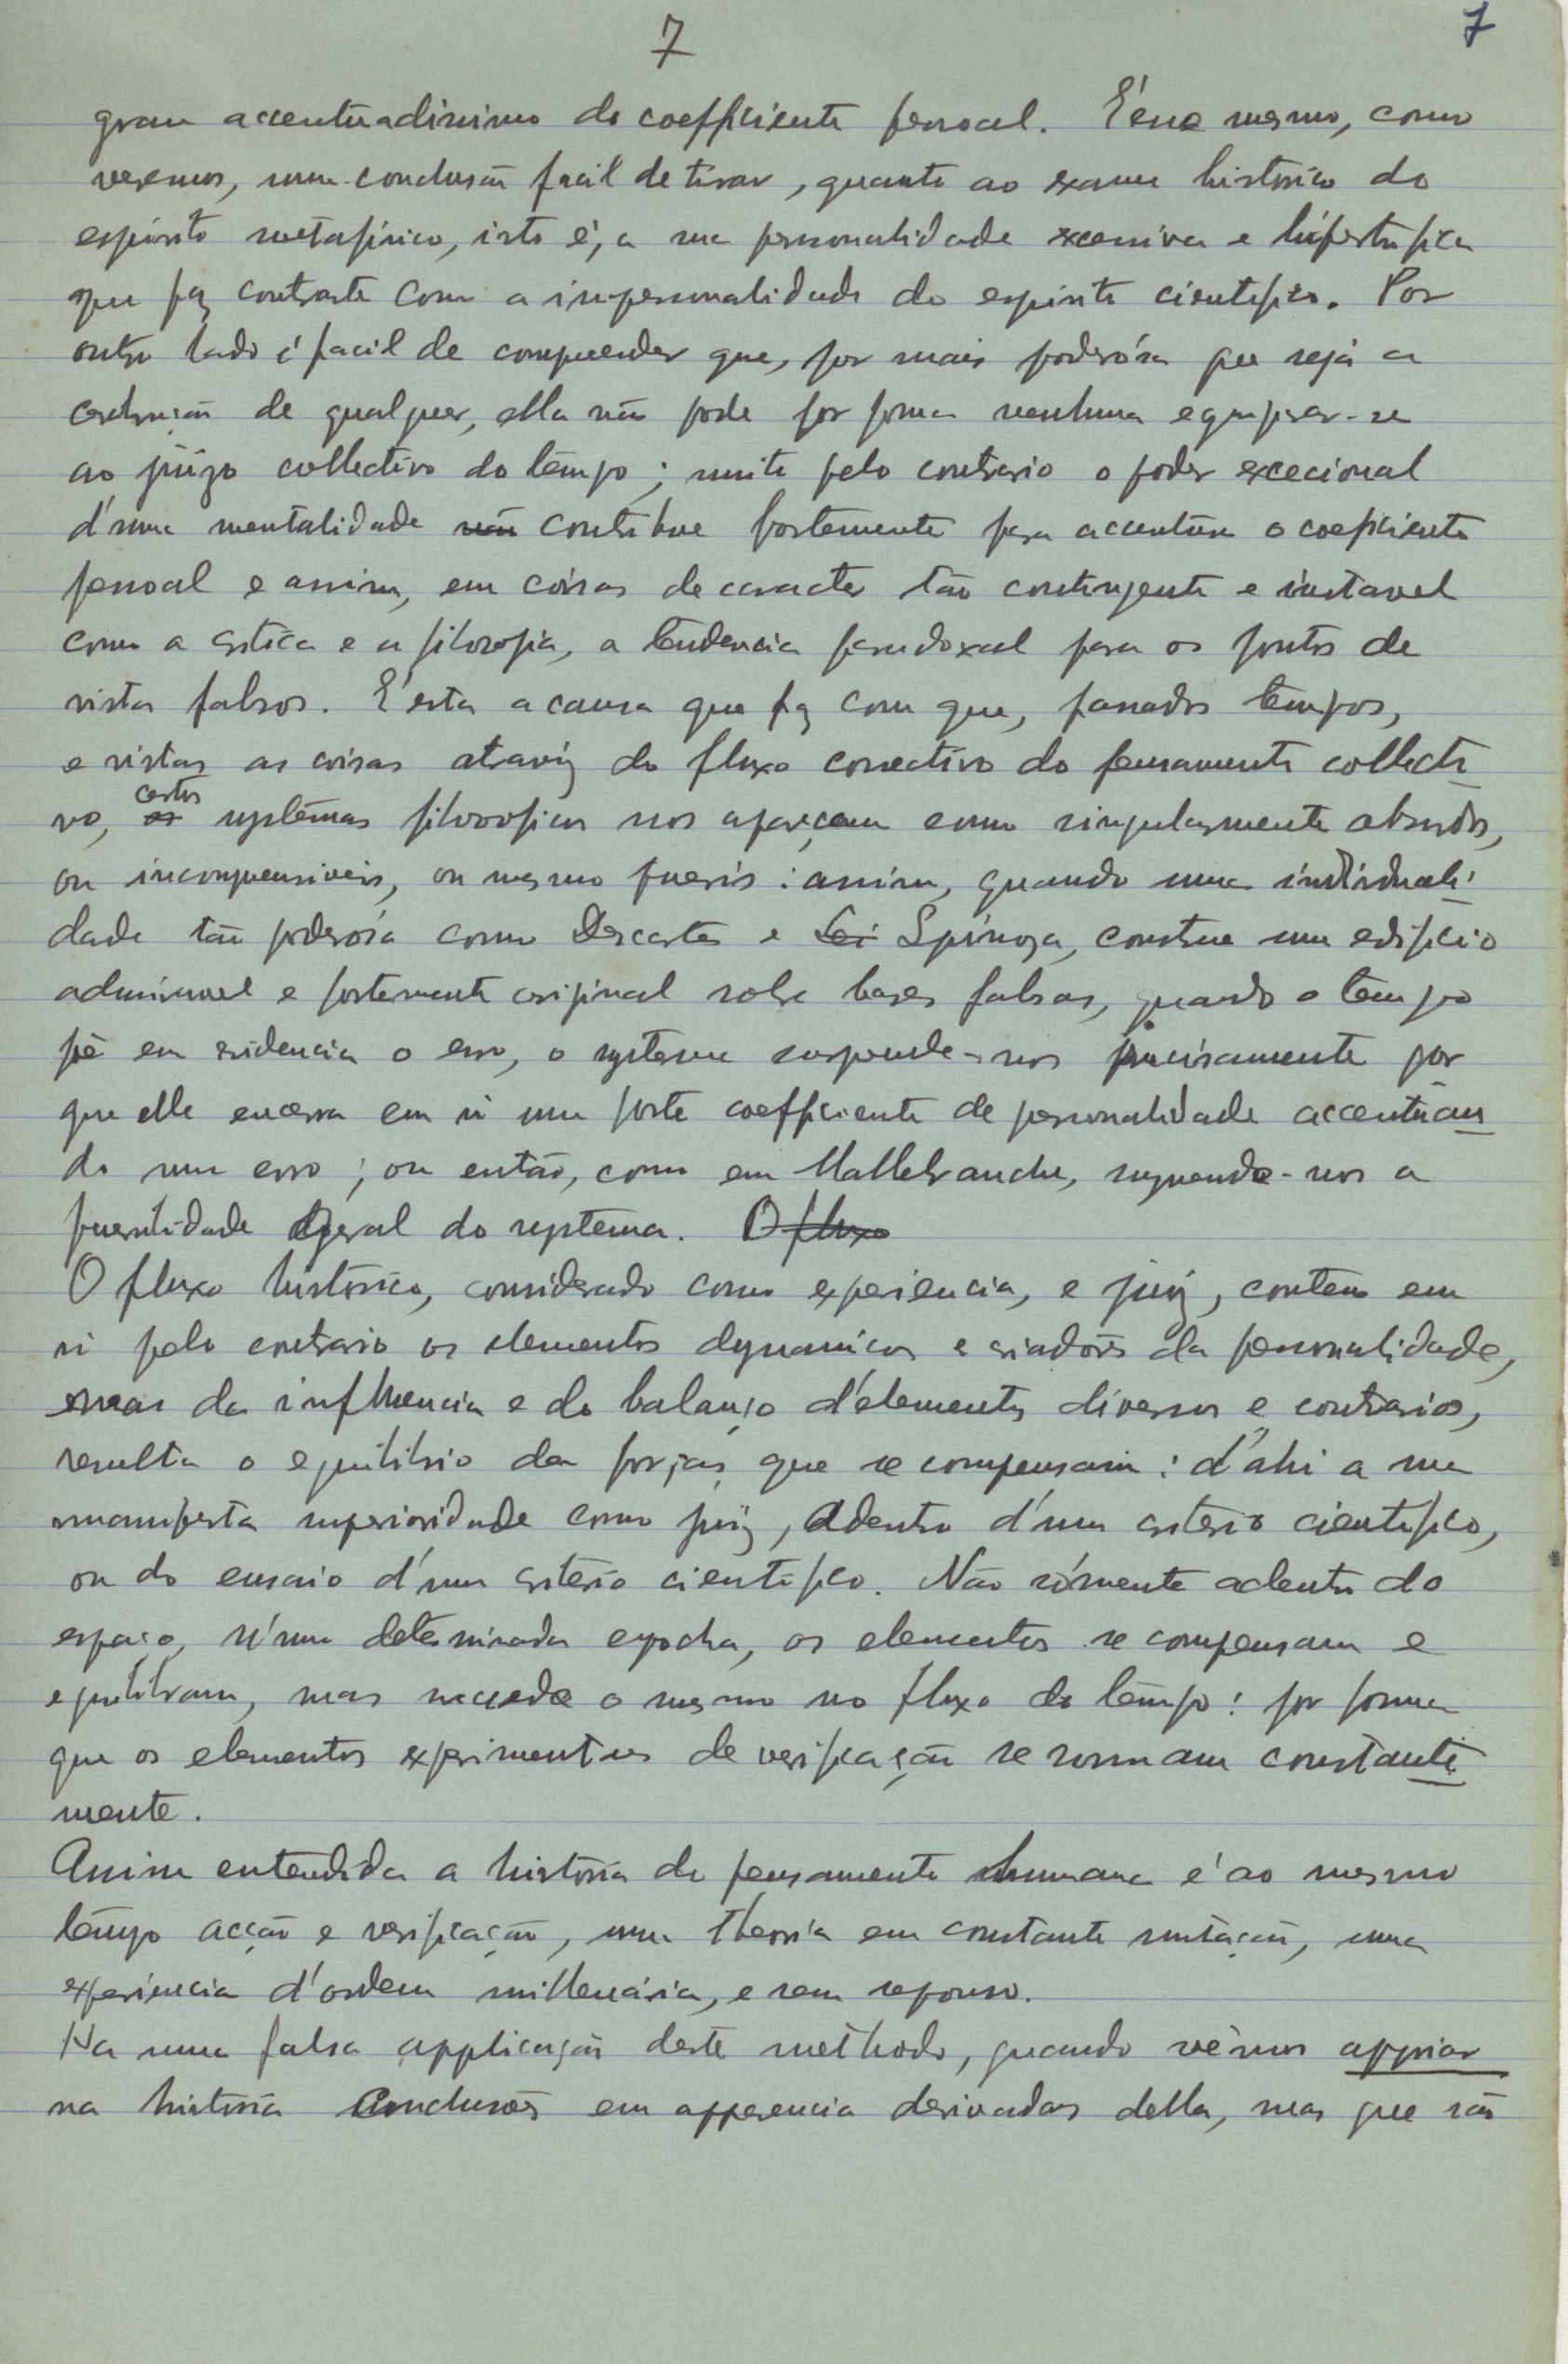 7
7
grau accentuadissimo do coefficiente pessoal. É esse mesmo, como
veremos, uma conclusão facil de tirar, quanto ao exame histórico do
espirito metafisico, isto é, a sua personalidade excessiva e hipertrofica
que faz contraste com a impersonalidade do espirito cientifico. Por
outro lado é facil de comprender que, por mais poderósa que seja a
de qualquer, ella não póde por forma nenhuma equiparar-se
ao juizo collectivo do tempo; muito pelo contrario o poder excecional
d'uma mentalidade não contribue fortemente para accentuar o coeficiente
pessoal e assim, em coisas de caracter tão contingente e instavel
como a critica e a filosofia, a tendencia paradoxal para os pontos de
vista falsos. É esta a causa que faz com que, passados tempos,
e vistas as coisas atravéz do fluxo corrective do pensamento collecti
vo, os certos systemas filosoficos nos apareçam como singularmente absurdos,
ou incompreensiveis, ou mesmo pueris: assim, quando uma individuali
dade tão poderósa como Descartes e Lei Spinoza, construe um edificio
admiravel e fortemente original sobre bases falsas, quando o tempo
põe em evidencia o erro, o systema surprende-nos precisamente por
que elle encerra em si um forte coefficiente de personalidade accentuan
do um erro; ou então, como em Mallebranche, surprende-nos a
puerilidade geral do systema. O fluxo
O fluxo histórico, considerado como experiencia, e juiz, contem em
si pelo contrario os elementos dynamicos e criadores da personalidade,
mas da influencia e do balanço d'elementos diversos e contrarios,
resulta o equilibrio das forças que se compensam: d'ahi a sua
manifesta superioridade como juiz, adentro d'um criterio cientifico,
ou do ensaio d'um criterio cientifico. Não sómente adentro do
espaço, n'uma determinada epocha, os elementos se compensam e
equilibram, mas succede o mesmo no fluxo do tempo: por forma
que os elementos experimentaes de verificação se sommam constante
mente.
Assim entendida a história do pensamento humano é ao mesmo
tempo acção e verificação, uma theoria em constante mutação, uma
experiencia d'ordem millenária, e sem repouso.
Ha uma falsa applicação deste methodo, quando vêmos appoiar
na história conclusões em apparencia derivadas della, mas que são